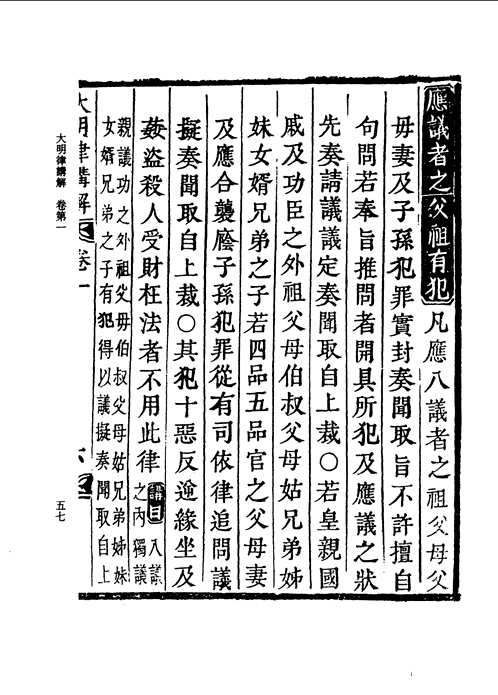 應議者之父祖有犯 凡應八議者之祖父母父
母妻及子孫犯罪實封奏聞取旨不許擅自
句問若奉旨推問者開具所犯及應議之狀
先奏請議議定奏聞取自上裁○若皇親國
戚及功臣之外祖父母伯叔父母姑兄弟姊
妹女婿兄弟之子若四品五品官之父母妻
及應合襲廕子孫犯罪從有司依律追問議
擬奏聞取自上裁○其犯十惡反逆緣坐及
姦盜殺人受財枉法者不用此律 講曰八議之內獨議
親議功之外祖父母伯叔父母姑兄弟姊妹
女婿兄弟之子有犯得以議擬奏聞取自上
大明律講解 卷一 六
大明律講解 卷第一
五七